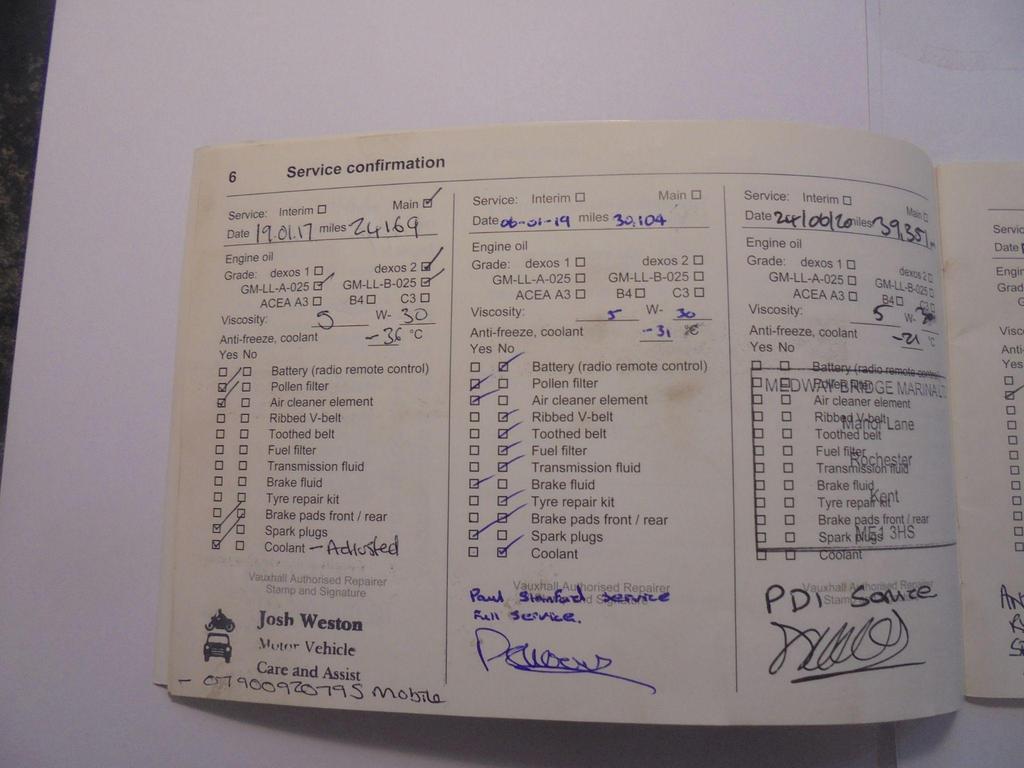 6 Service confirmation
Service: Interim ☐ Main ☑
Date 19.01.17 miles 24169
Engine oil
Grade: dexos 1 ☐ dexos 2 ☑
GM-LL-A-025 ☑ GM-LL-B-025 ☑
ACEA A3 ☐ B4 ☐ C3 ☐
Viscosity: 5 W- 30
Anti-freeze, coolant -36 °C
Yes No
Battery (radio remote control)
Pollen filter
Air cleaner element
Ribbed V-belt
Toothed belt
Fuel filter
Transmission fluid
Brake fluid
Tyre repair kit
Brake pads front / rear
Spark plugs
Coolant - Adjusted
Vauxhall Authorised Repairer
Stamp and Signature
Josh Weston
Motor Vehicle
Care and Assist
- 07900920795 Mobile
Service: Interim ☐ Main ☐
Date 06-01-19 miles 30,104
Engine oil
Grade: dexos 1 ☐ dexos 2 ☐
GM-LL-A-025 ☐ GM-LL-B-025 ☐
ACEA A3 ☐ B4 ☐ C3 ☐
Viscosity: 5 W- 30
Anti-freeze, coolant -31 °C
Yes No
Battery (radio remote control)
Pollen filter
Air cleaner element
Ribbed V-belt
Toothed belt
Fuel filter
Transmission fluid
Brake fluid
Tyre repair kit
Brake pads front / rear
Spark plugs
Coolant
Vauxhall Authorised Repairer
Paul service
Full service.
Service: Interim ☐ Main ☐
Date 24/06/20 miles 39,351
Engine oil
Grade: dexos 1 ☐ dexos 2 ☐
GM-LL-A-025 ☐ GM-LL-B-025 ☐
ACEA A3 ☐ B4 ☐ C3 ☐
Viscosity: 5 W-
Anti-freeze, coolant -21 °C
Yes No
Battery (radio remote control)
MEDWAY BRIDGE MARINA
Pollen filter
Air cleaner element
Ribbed V-belt
Manor Lane
Toothed belt
Fuel filter
Rochester
Transmission fluid
Brake fluid
Kent
Tyre repair kit
Brake pads front / rear
Spark plugs
ME1 3HS
Coolant
Vauxhall Authorised Repairer
PDI Service